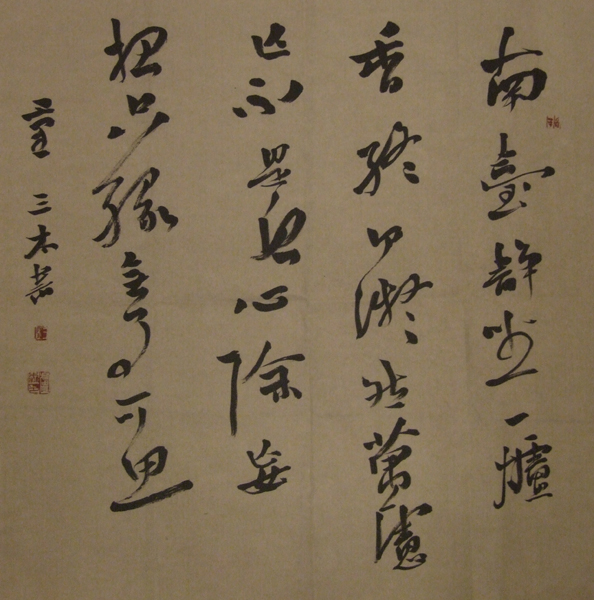 南臺靜坐一爐
香終日凝然萬慮
亡不是息心除妄
想只緣無事可思
量 三木書